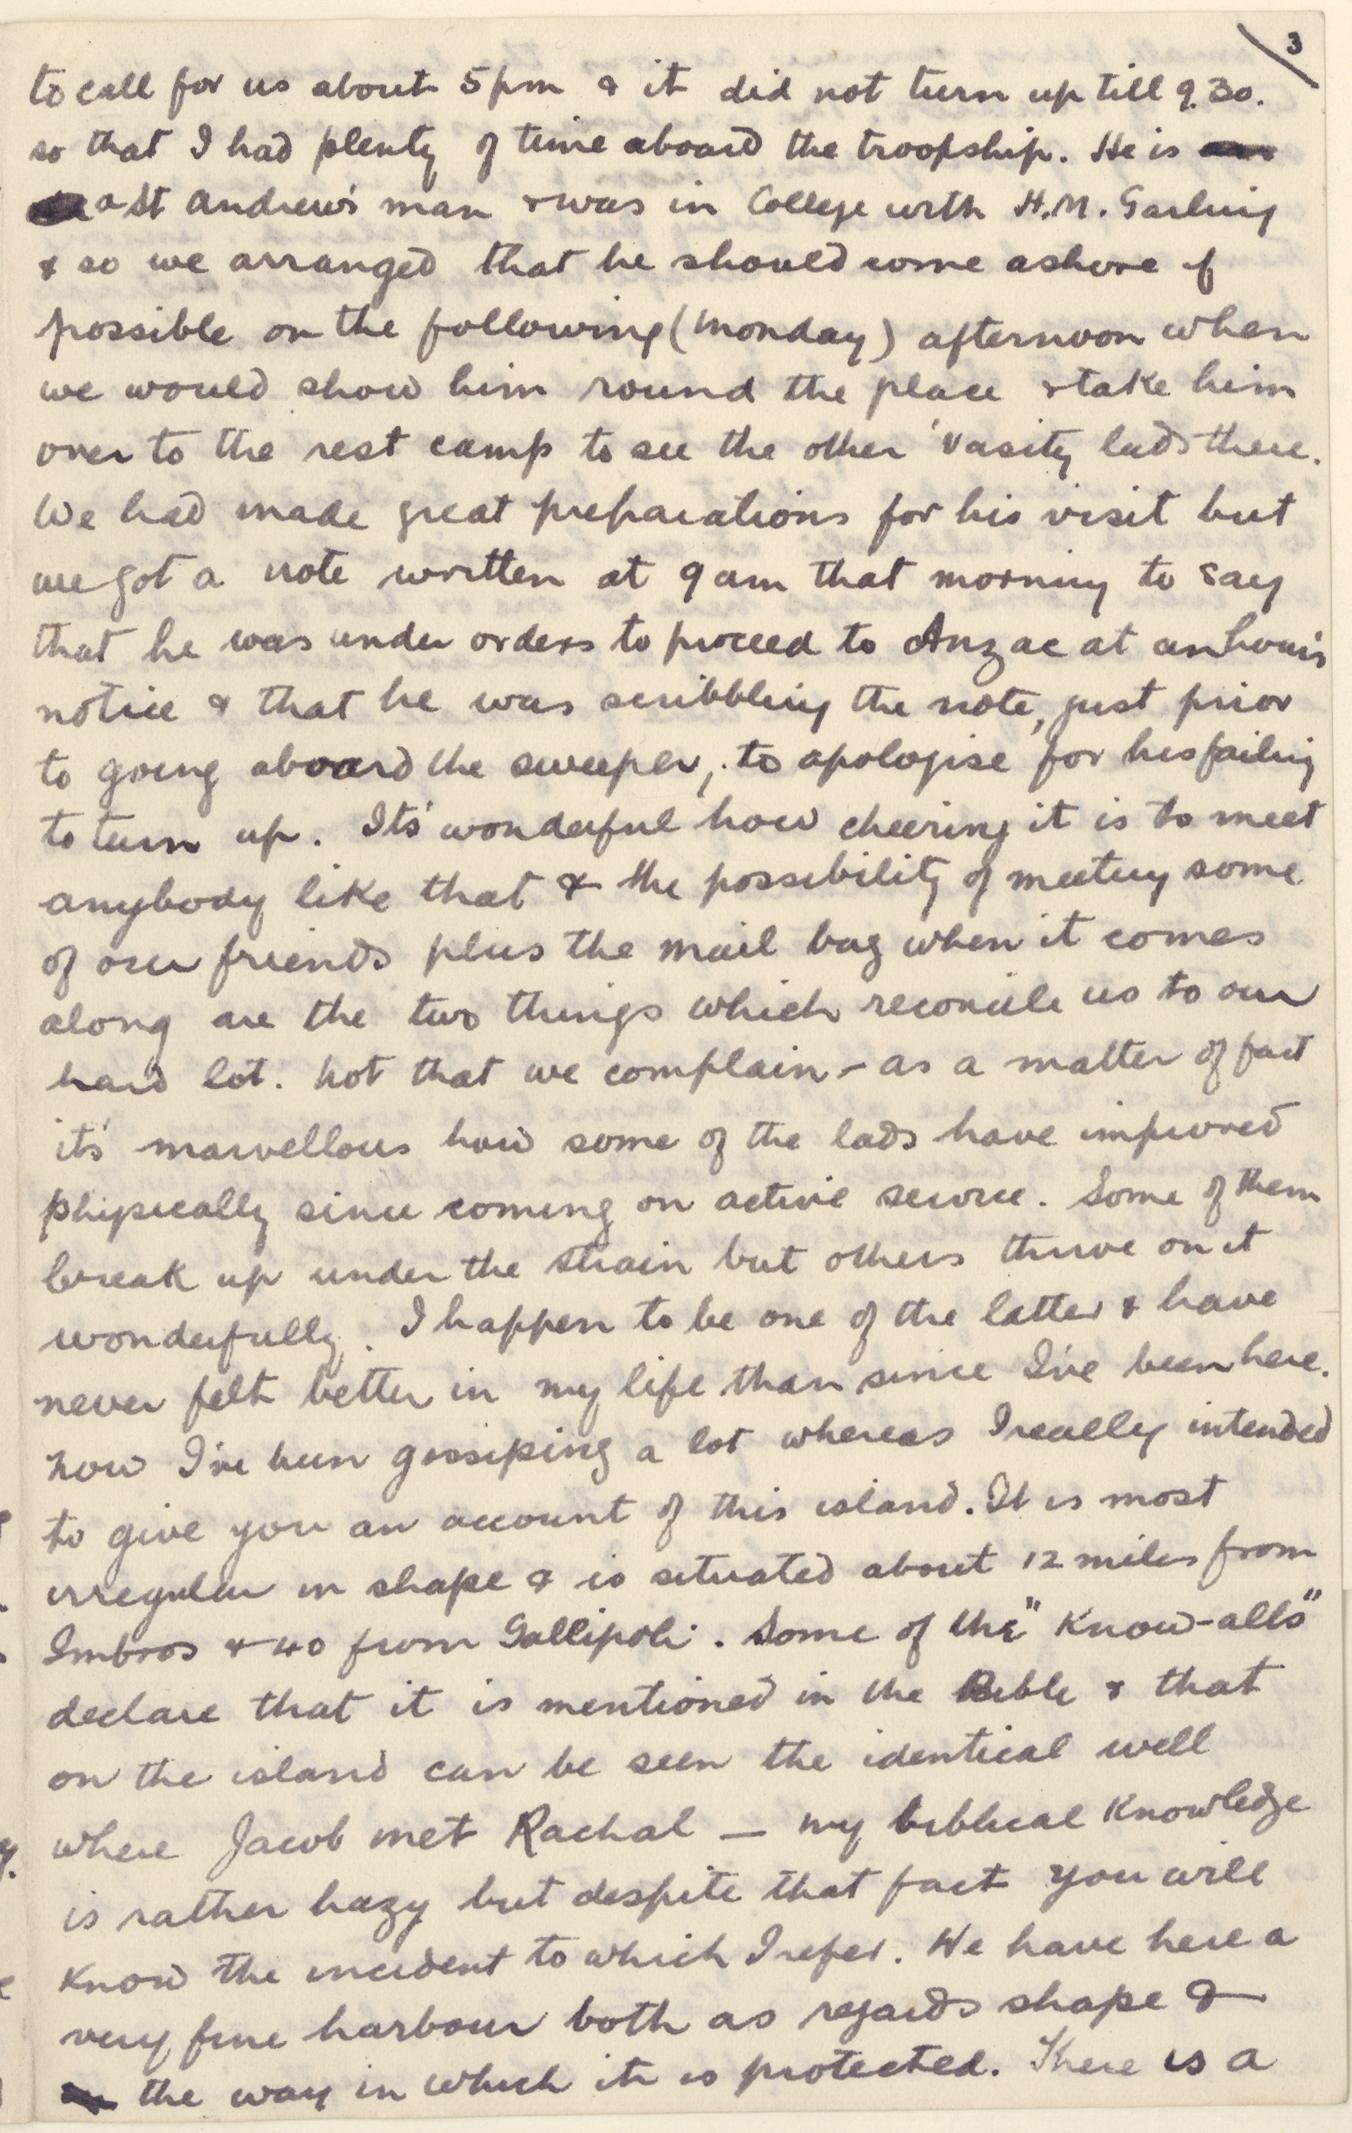 3
to call for us about 5pm & it did not turn up till 9.30.
so that I had plenty of time aboard the troopship. He is
a St Andrew's man & was in College with H.M. Garling
& so we arranged that he should come ashore if
possible on the following (Monday) afternoon when
we would show him round the place & take him
over to the rest camp to see the other 'Vasity lads there.
We had made great preparations for his visit but
we got a note written at 9am that morning to say
that he was under orders to proceed to Anzac at an hour's
notice & that he was scribbling the note, just prior
to going aboard the sweeper, to apologise for his failing
to turn up. Its' wonderful how cheering it is to meet
anybody like that & the possibility of meeting some
of our friends plus the mail bag when it comes
along are the two things which reconcile us to our
hard lot. Not that we complain - as a matter of fact
its' marvellous how some of the lads have improved
physically since coming on active service. Some of them
break up under the strain but others thrive on it
wonderfully. I happen to be one of the latter & have
never felt better in my life than since I've been here.
Now I've been gossiping a lot whereas I really intended
to give you an account of this island. It is most
irregular in shape & is situated about 12 miles from
Imbros & 40 from Gallipoli. Some of the "Know-alls"
declare that it is mentioned in the Bible & that
on the island can be seen the identical well
where Jacob met Rachal — my biblical knowledge
is rather hazy but despite that fact you will
know the incident to which I refer. We have here a
very fine harbour both as regards shape &
the way in which it is protected. There is a